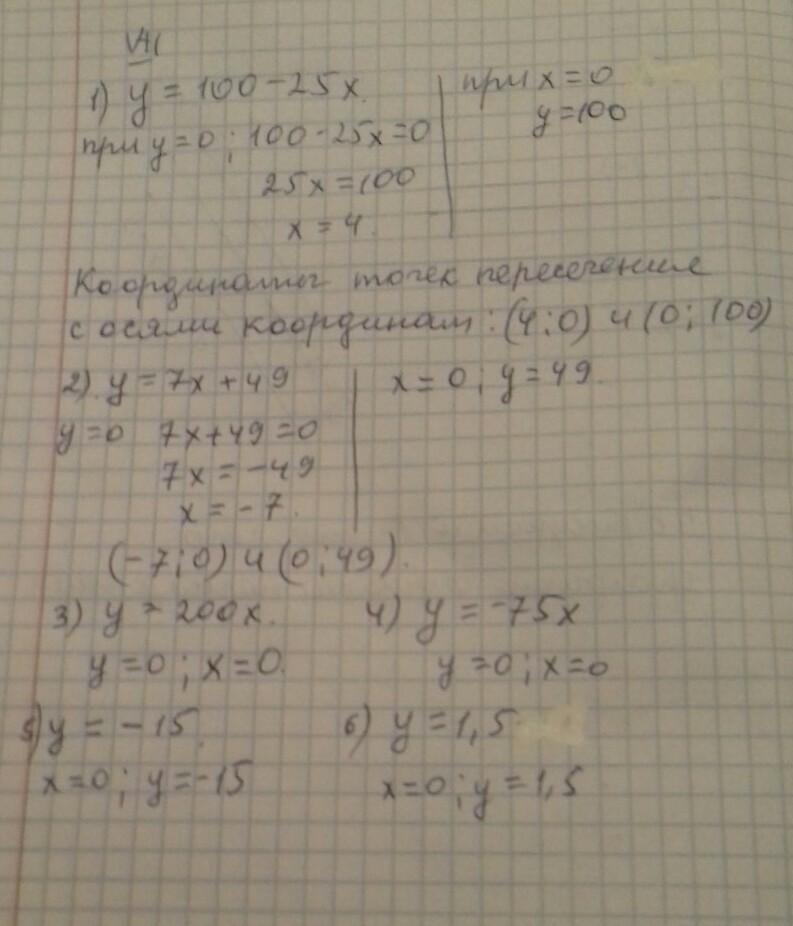 №1
1) y = 100 - 25x.
при y=0; 100 - 25x = 0
25x = 100
x = 4.
при x = 0
y = 100
Координаты точек пересечение
с осями координат: (4; 0) и (0; 100)
2) y = 7x + 49
y = 0 7x + 49 = 0
7x = -49
x = -7.
x = 0; y = 49.
(-7; 0) и (0; 49).
3) y = 200x.
y = 0; x = 0.
4) y = -75x
y = 0; x = 0
5) y = -15.
x = 0; y = -15
6) y = 1,5
x = 0; y = 1,5